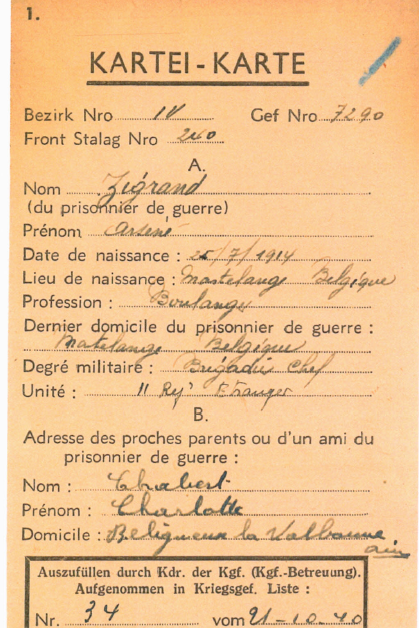 1.
KARTEI - KARTE
Bezirk Nro IV Gef Nro 7290
Front Stalag Nro 240
A.
Nom Zigrand
(du prisonnier de guerre)
Prénom Arsène
Date de naissance : 25/7/1914
Lieu de naissance : Martelange Belgique
Profession : Boulanger
Dernier domicile du prisonnier de guerre :
Matelange Belgique
Degré militaire : Brigadier Chef
Unité : 11 Regt Etranger
B.
Adresse des proches parents ou d'un ami du
prisonnier de guerre :
Nom : Chabert
Prénom : Charlotte
Domicile : Beligneux la Valbonne
ain
Auszufüllen durch Kdr. der Kgf. (Kgf.-Betreuung).
Aufgenommen in Kriegsgef. Liste :
Nr. 34 vom 21-10-40